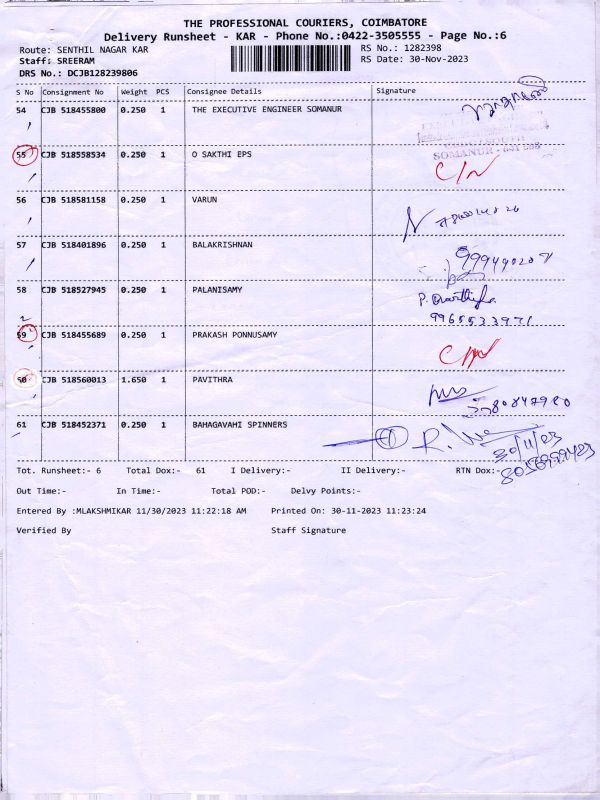 THE PROFESSIONAL COURIERS, COIMBATORE
Delivery Runsheet - KAR - Phone No.:0422-3505555 - Page No.:6
Route: SENTHIL NAGAR KAR RS No.: 1282398
Staff: SREERAM RS Date: 30-Nov-2023
DRS No.: DCJB128239806
S No Consignment No Weight PCS Consignee Details Signature
54 CJB 518455800 0.250 1 THE EXECUTIVE ENGINEER SOMANUR
55 CJB 518558534 0.250 1 O SAKTHI EPS
SOMANUR
C/N
56 CJB 518581158 0.250 1 VARUN
57 CJB 518401896 0.250 1 BALAKRISHNAN
58 CJB 518527945 0.250 1 PALANISAMY
9965533971
59 CJB 518455689 0.250 1 PRAKASH PONNUSAMY
60 CJB 518560013 1.650 1 PAVITHRA
61 CJB 518452371 0.250 1 BAHAGAVAHI SPINNERS
30/11/23
Tot. Runsheet:- 6 Total Dox:- 61 I Delivery:- II Delivery:- RTN Dox:-
Out Time:- In Time:- Total POD:- Delvy Points:-
Entered By :MLAKSHMIKAR 11/30/2023 11:22:18 AM Printed On: 30-11-2023 11:23:24
Verified By Staff Signature